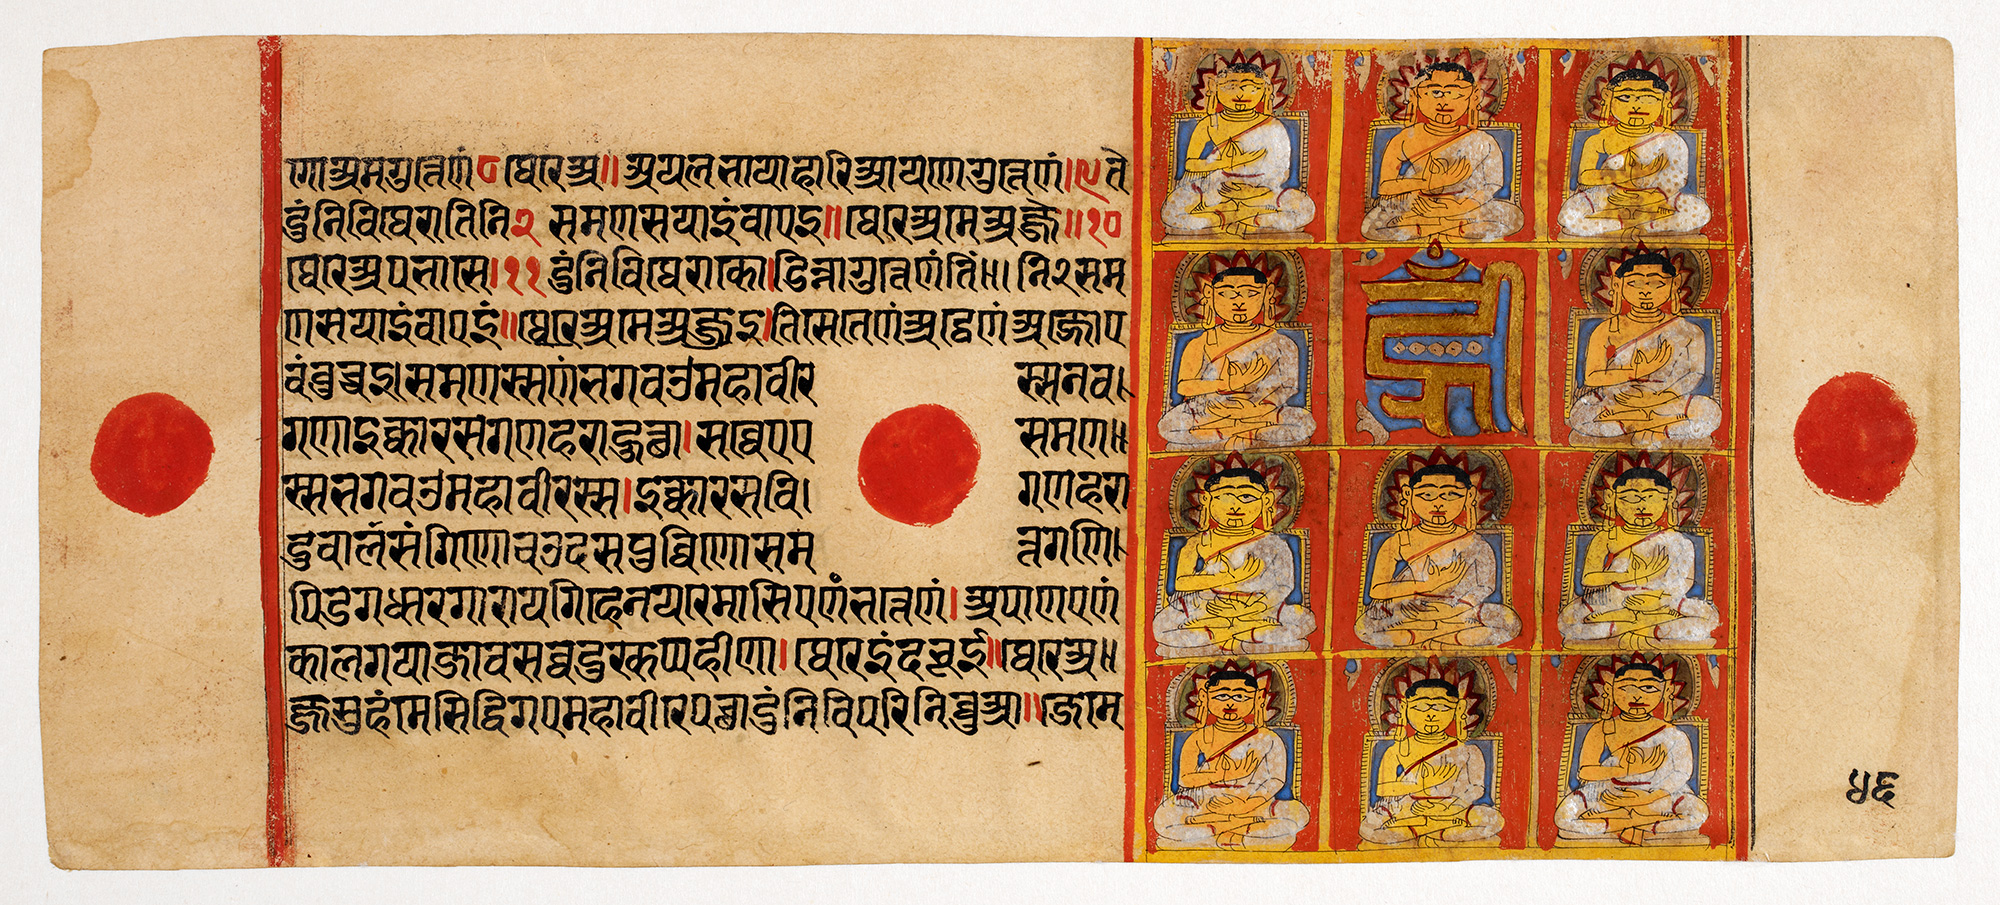 णे अमगुत्तेणं ८ थेरे अ॥ अयलभाया हारिआयणे गुत्तेणं।९ ते
दुंनि वि थेरा तिनि २ समणसयाइं वाएइ॥ थेरे अ मेअज्जे॥१०
थेरे अ पभासे।११ दुंनि वि थेरा को।डिन्ना गुत्तेणं तिं॥। नि २ सम
णसयाइं वाएइं॥ थेरे अ मेअज्जइ। से तेणं अट्ठेणं अज्जो ए
वं वुच्चइ। समणस्स णं भगवओ महावीरस्स नव।
गणा इक्कारस गणहरा हुत्था। सव्वे एए समण॥
स्स भगवओ महावीरस्स। इक्कारस वि। गणहरा
दुवालसंगिणो चउदसपुव्विणो सम्मत्तगणि।
पिडगधारगा रायगिहे नयरे मासिएणं भत्तेणं। अपाणएणं
कालगया जाव सव्वदुक्खप्पहीणा। थेरे इंदभूई॥ थेरे अ॥
ज्जसुहंमे सिद्धिंगए महावीरे पच्छा दुंनि वि परिनिव्वुआ॥ जे
५६